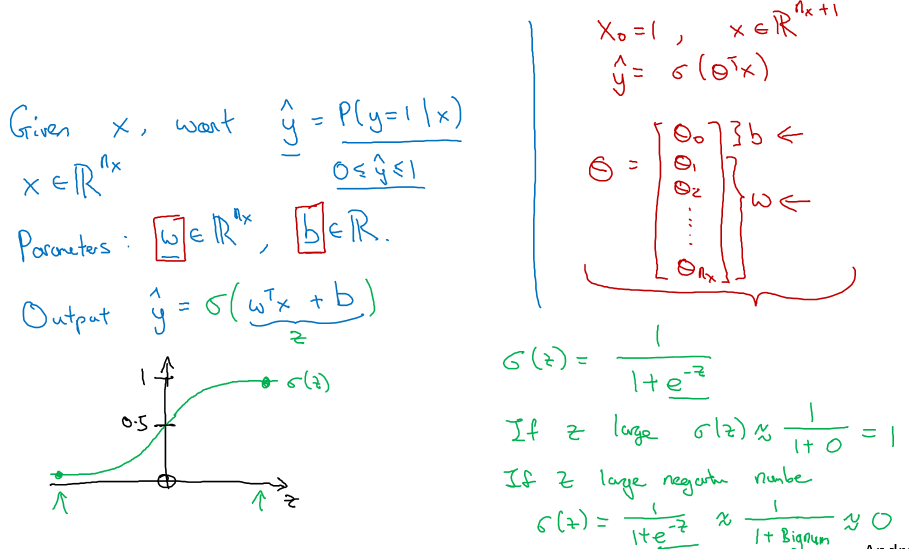 Given x, want ŷ = P(y=1|x)
0≤ŷ≤1
x ∈ ℝ^{n_x}
Parameters: w ∈ ℝ^{n_x}, b ∈ ℝ.
Output ŷ = σ(w^T x + b)
z
1
σ(z)
0.5
z
x_0=1, x ∈ ℝ^{n_x+1}
ŷ = σ(θ^T x)
θ = [θ_0 θ_1 θ_2 ⋮ θ_{n_x}]
} b ←
} w ←
σ(z) = 1/(1+e^{-z})
If z large σ(z) ≈ 1/(1+0) = 1
If z large negative number
σ(z) = 1/(1+e^{-z}) ≈ 1/(1+Bignum) ≈ 0